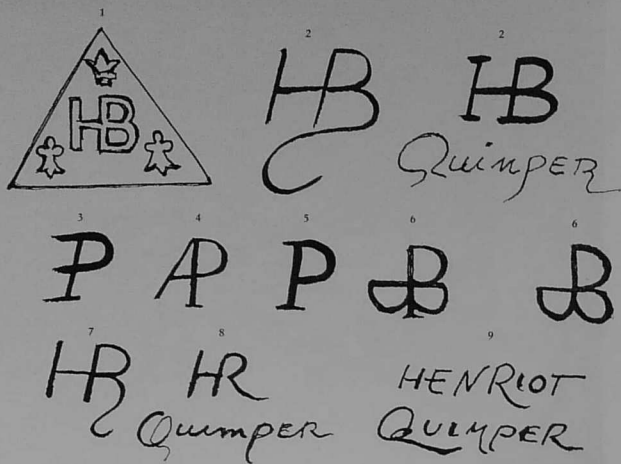 1
HB
2
HB
2
HB
Quimper
3
P
4
AP
5
P
6
B
6
B
7
HB
8
HR
Quimper
9
HENRIOT
QUIMPER